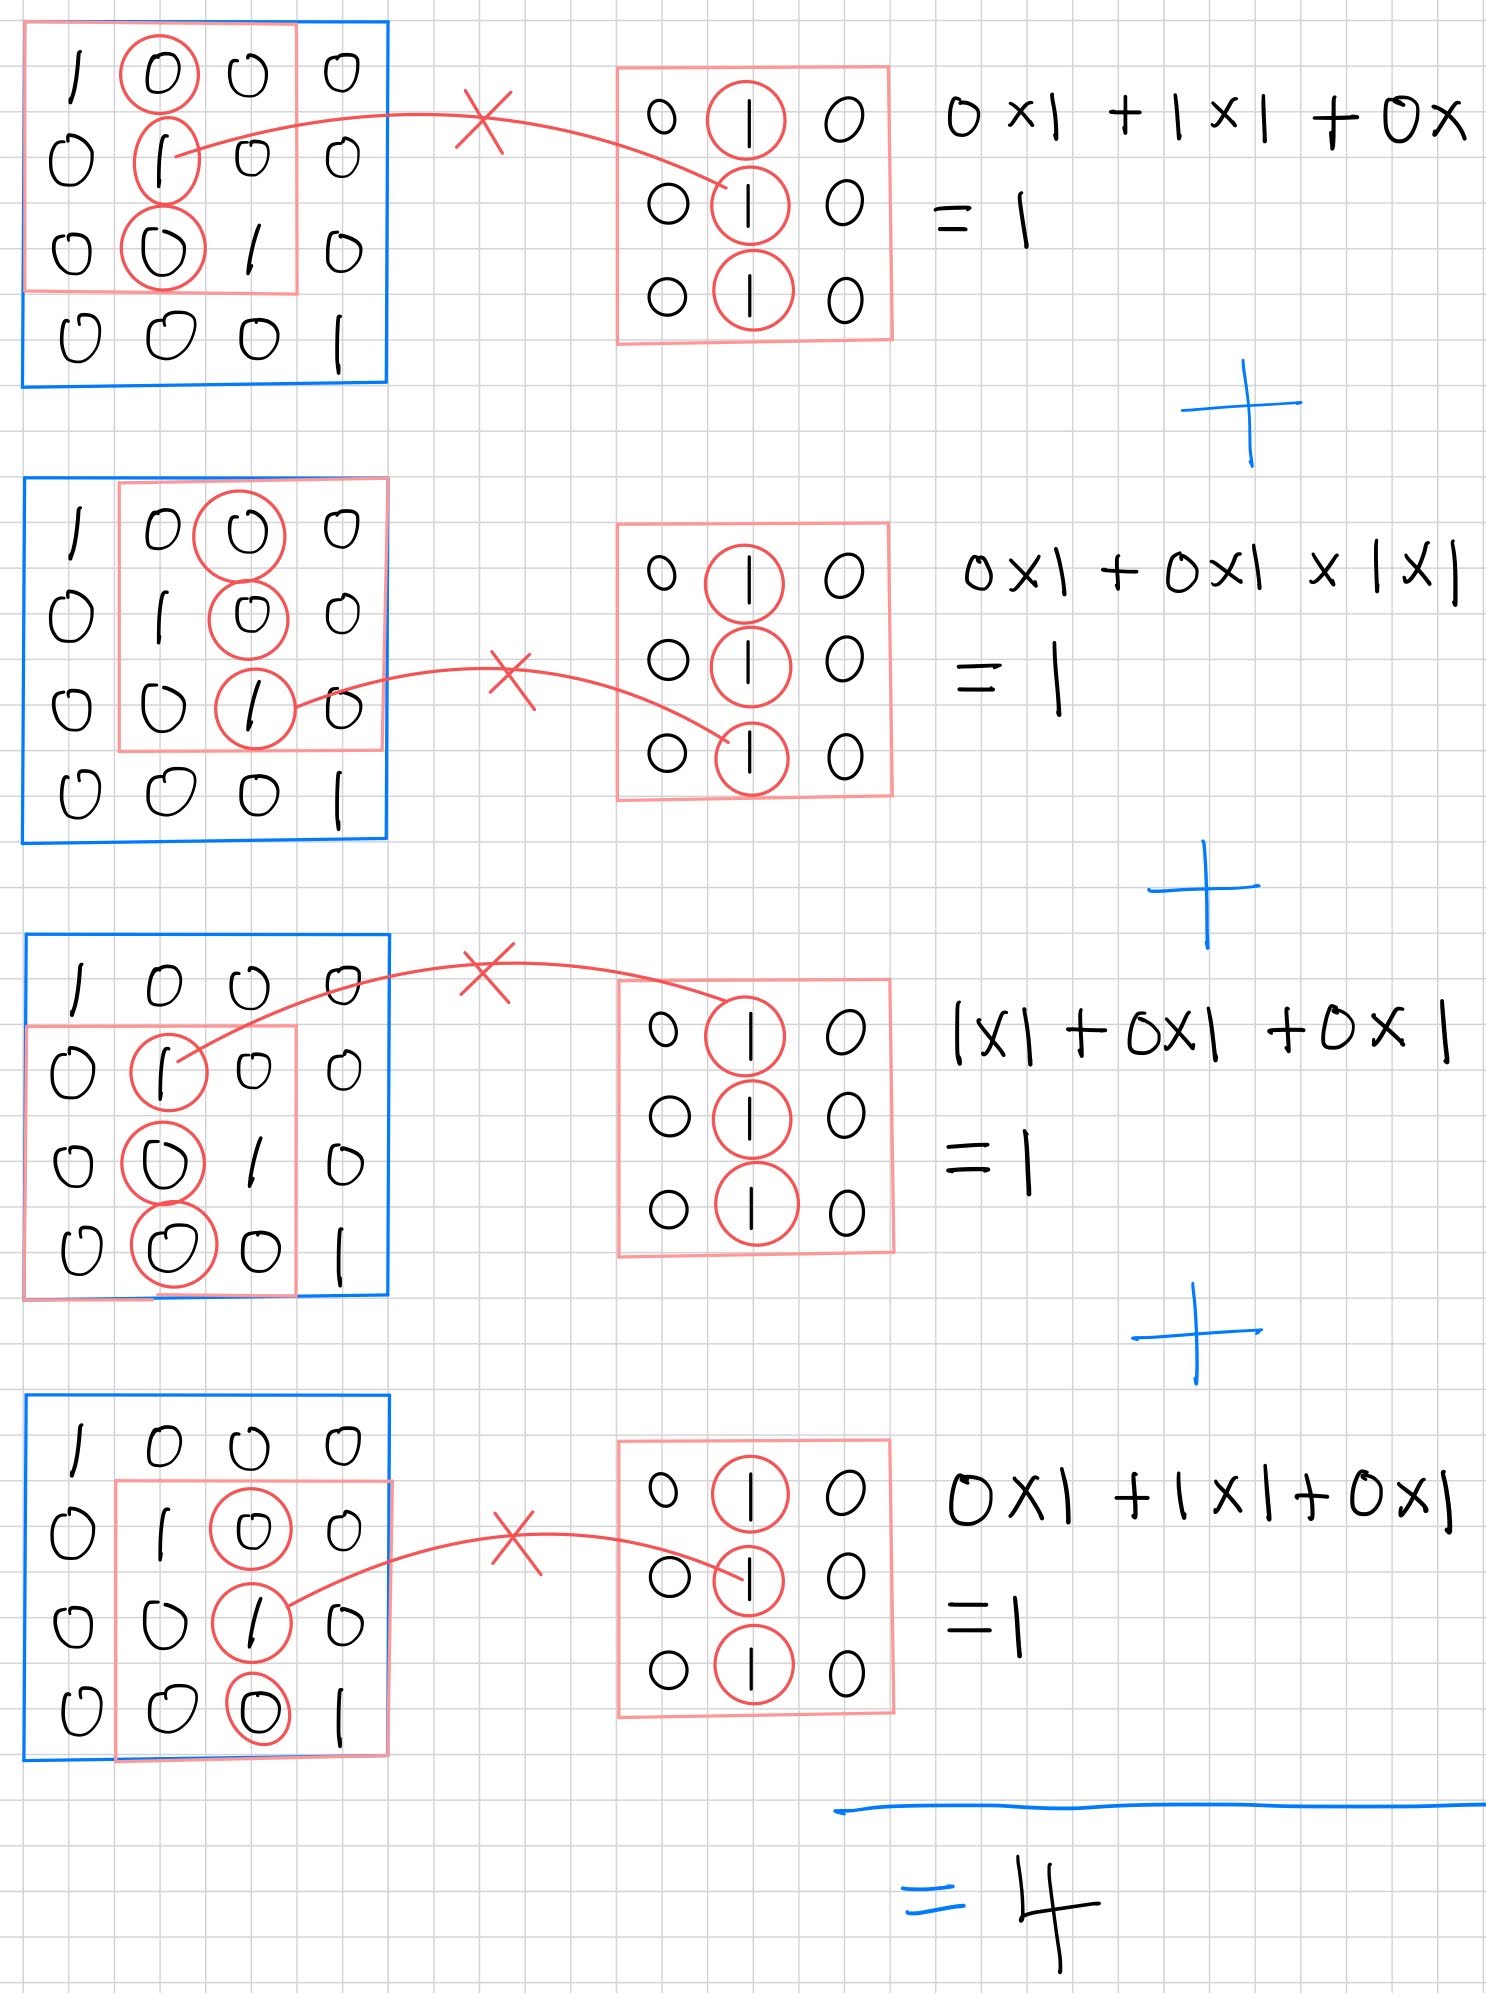 1 0 0 0
0 1 0 0
0 0 1 0
0 0 0 1
0 1 0
0 1 0
0 1 0
0 x 1 + 1 x 1 + 0 x
= 1
+
1 0 0 0
0 1 0 0
0 0 1 0
0 0 0 1
0 1 0
0 1 0
0 1 0
0 x 1 + 0 x 1 x 1 x 1
= 1
+
1 0 0 0
0 1 0 0
0 0 1 0
0 0 0 1
0 1 0
0 1 0
0 1 0
1 x 1 + 0 x 1 + 0 x 1
= 1
+
1 0 0 0
0 1 0 0
0 0 1 0
0 0 0 1
0 1 0
0 1 0
0 1 0
0 x 1 + 1 x 1 + 0 x 1
= 1
= 4